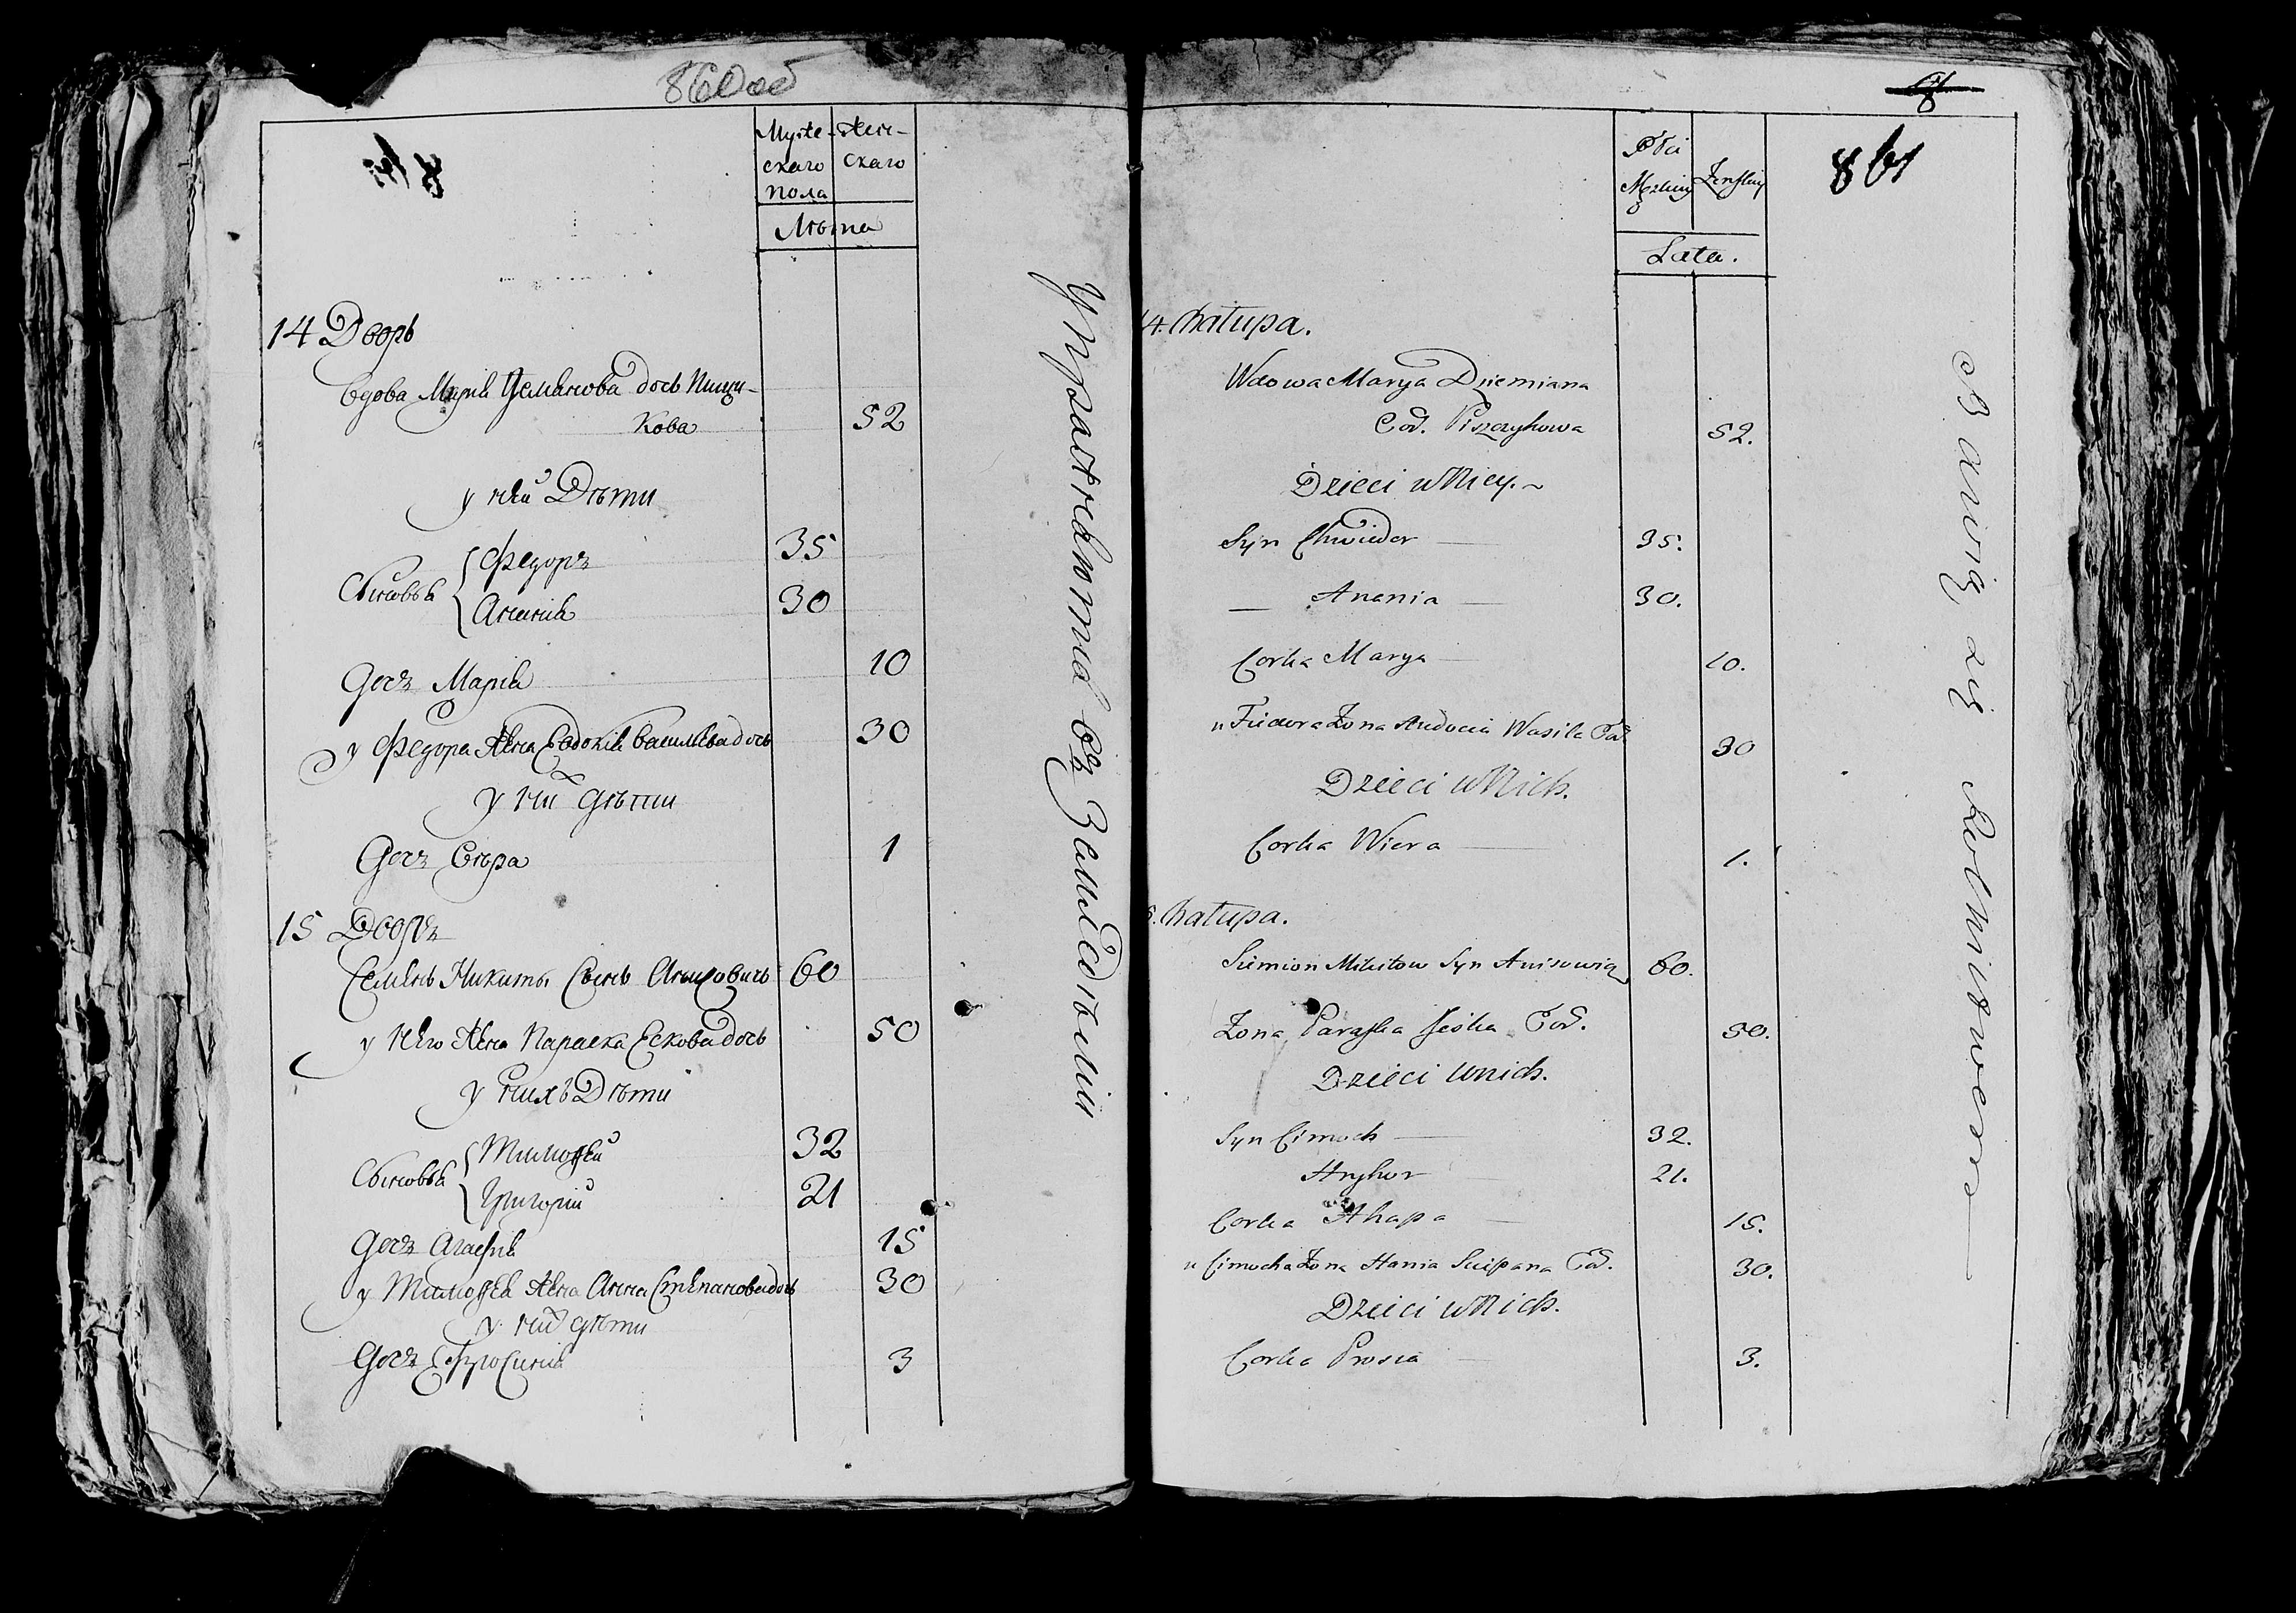 860об
Муже- Жен-
скаго скаго
пола
Лѣта
14 Дворъ
Вдова Марія Демянова дочь Пищи-
кова 52
у ней Дѣти
Сыновья Федоръ 35
Ананія 30
Дочь Марія 10
у Федора Жена Евдокія Васильева дочь 30
у ни дѣти
Дочь Вѣра 1
15 Дворъ
Семенъ Никиты Сынъ 60
у Него Жена Параска Ескова дочь 50
у нихъ Дѣти
Сыновья Тимофей 32
Григорій 21
Дочь Агафія 15
у Тимофея Жена Анна Степанова дочь 30
у ни дѣти
Дочь Ефросинія 3
Упражняются въ Земледѣліи
861
Płci
Męzkiey Zenskiey
Lata.
14. Chałupa.
Wdowa Marya Dziemiana
Cod. Piszczykowa 52.
Dzieci u Niey.
Syn Chwiedor 35.
Anania 30.
Corka Marya 10.
u Fiedora Zona Audocia Wasila Cod. 30
Dzieci u Nich.
Corka Wiera 1.
Chałupa.
Siemion Mikitow Syn Anisowicz 60.
Zona Paraska Jeska Cod. 50.
Dzieci u nich.
Syn Cimoch 32.
Hryhor 21.
Corka Ahapa 15.
u Cimocha Zona Hania Sciepana Cod. 30.
Dzieci u Nich.
Corka Prosia 3.
Bawią się Rolnictwem